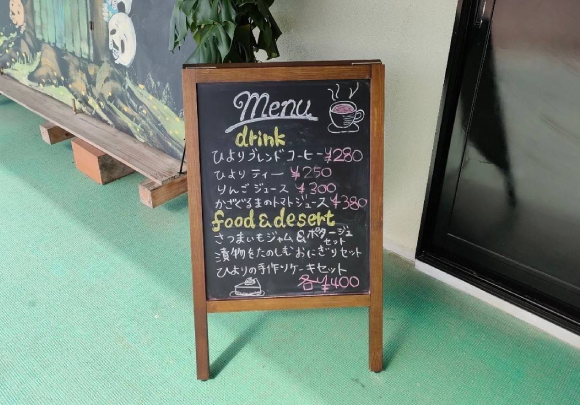 Menu
drink
ひよりブレンドコーヒー ¥280
ひよりティー ¥250
りんごジュース ¥300
かざぐるまのトマトジュース ¥380
food & desert
さつまいもジャム & ポタージュ
セット
漬物をたのしむおにぎりセット
ひよりの手作りケーキセット
各¥400